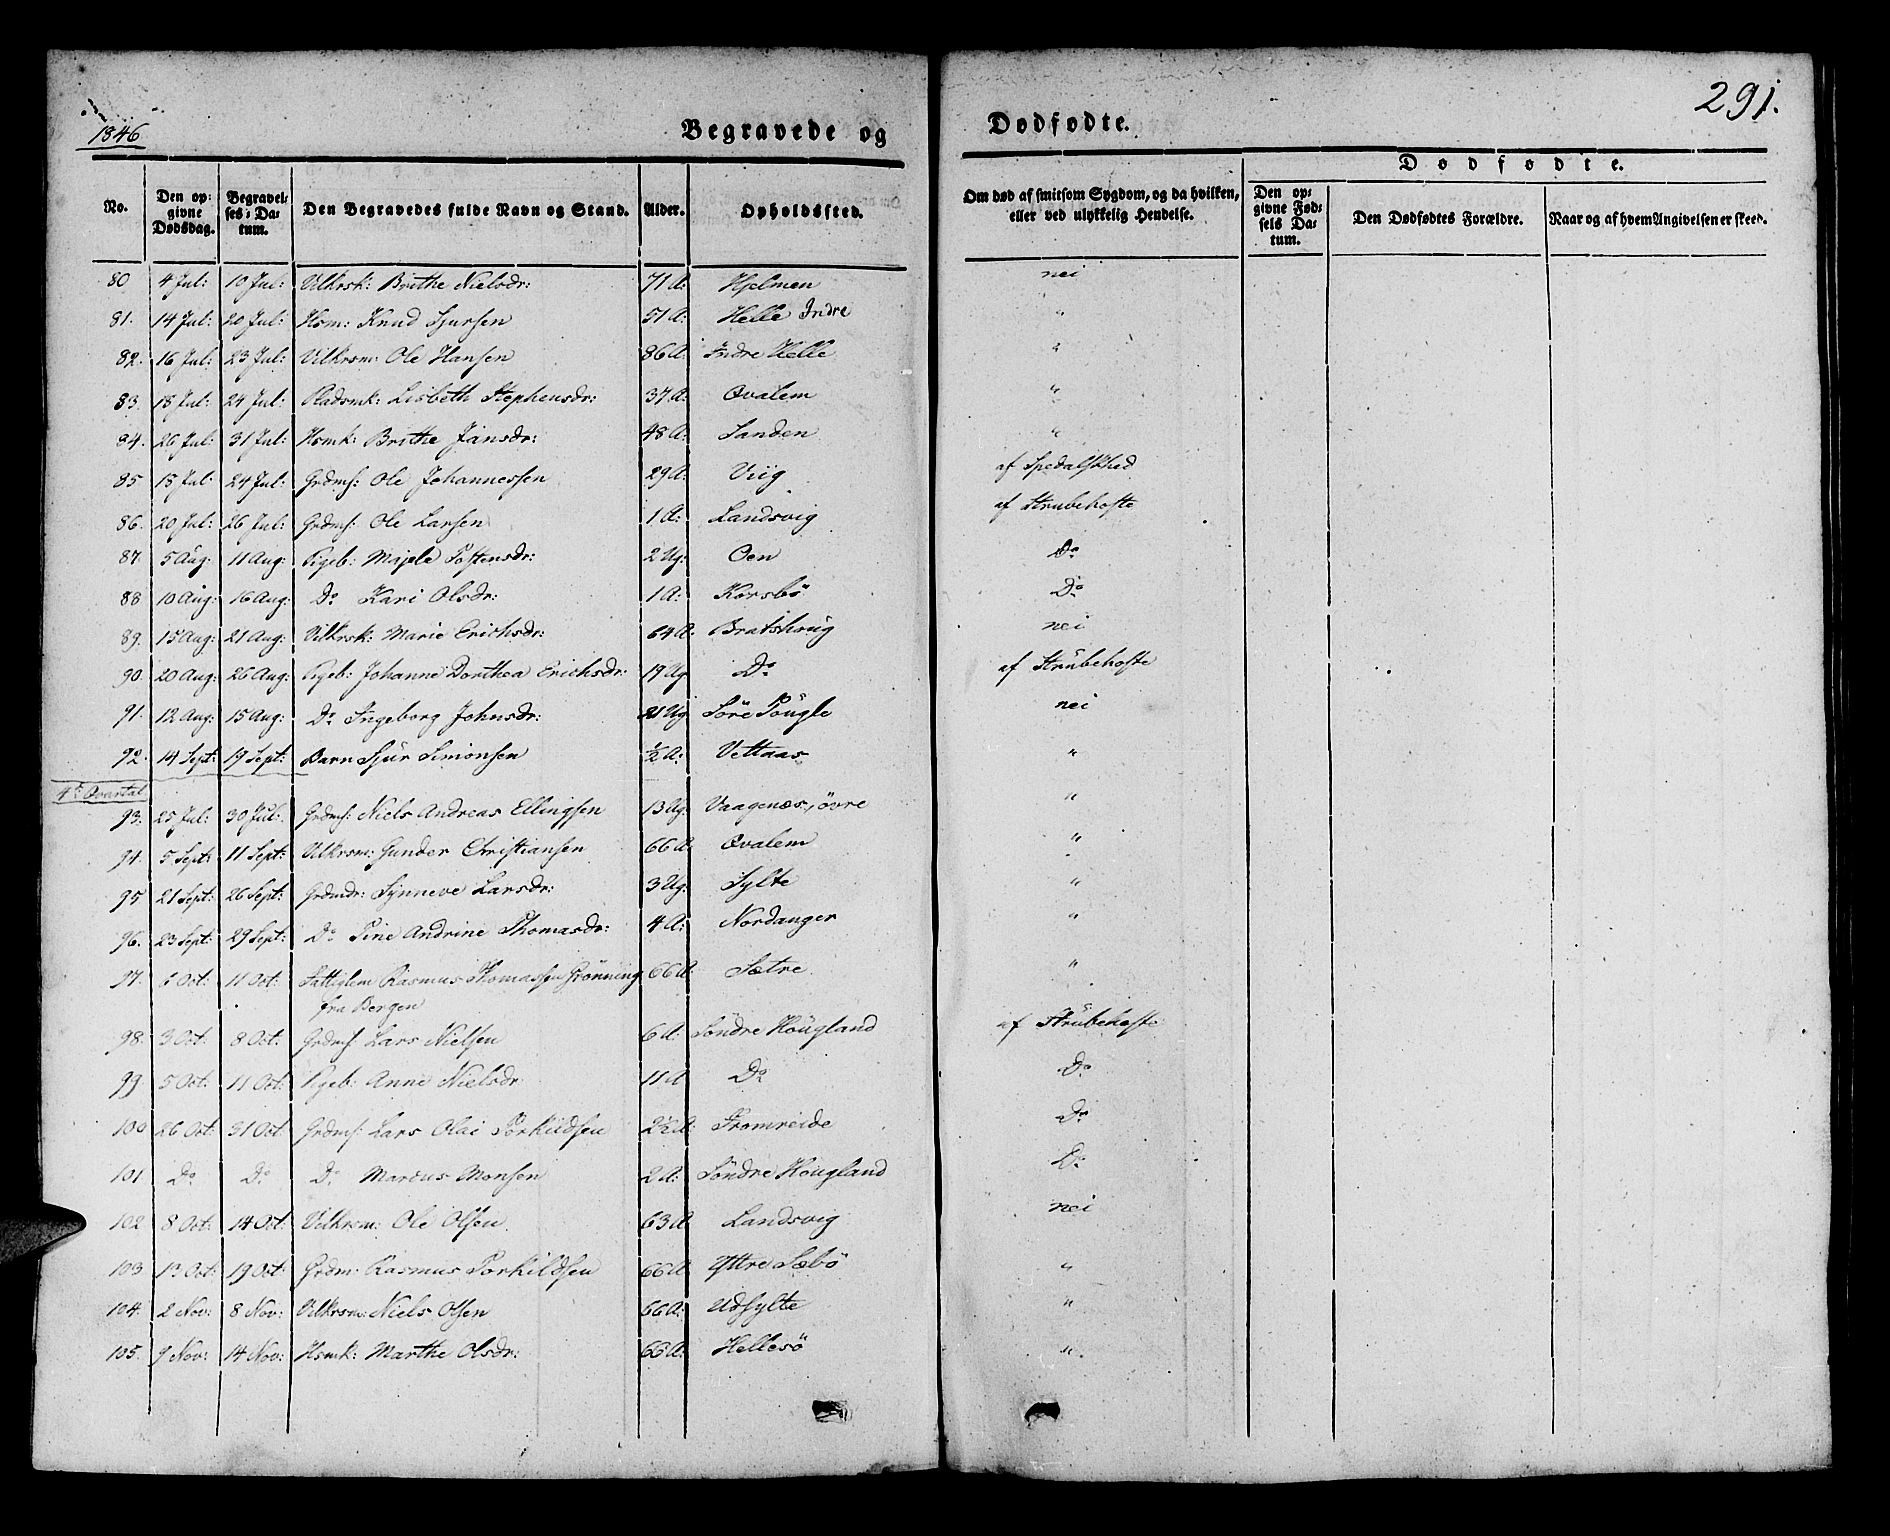 1846
Begravede og
Dødfødte.
291.
No.
Den op=
givne
Dødsdag.
Begravel=
ses=Da=
tum.
Den Begravedes fulde Navn og Stand.
Alder.
Opholdssted.
Om død af smitsom Sygdom, og da hvilken,
eller ved ulykkelig Hendelse.
Dødfødte.
Den op=
givne Fød=
sels Da=
tum.
Den Dødfødtes Forældre.
Naar og af hvem Angivelsen er skeed.
80 4 Jul: 10 Jul: Vilkrsk: Brithe Nielsdr: 71 A: Hjelmen nei
81. 14 Jul: 20 Jul: Hsm: Knud Sjursen 51 A: Helle Indre "
82. 16 Jul: 23 Jul: Vilkrsm: Ole Hansen 86 A: Indre Helle "
83. 18 Jul: 24 Jul: Pladsmk: Lisbeth Stephensdr: 37 A: Qvalem "
84. 26 Jul: 31 Jul: Hsmk: Brithe Jansdr: 48 A: Sanden "
85 18 Jul: 24 Jul: Grdms: Ole Johannessen 29 A: Viig af Spedalskhed
86. 20 Jul: 26 Jul: Grdms: Ole Larsen 1 A: Landsvig af Strubehoste
87. 5 Aug: 11 Aug: Pigeb: Majele Tostensdr: 2 Ug: Oen Do
88 10 Aug: 16 Aug: Do Kari Olsdr: 1 A: Korsbö Do
89. 15 Aug: 21 Aug: Vilkrsk: Marie Erichsdr: 64 A: Bratshoug nei
90. 20 Aug: 26 Aug: Pigeb: Johanne Dorthea Erichsdr: 19 Ug Do af Strubehoste
91. 12 Aug: 15 Aug: Do Ingeborg Johnsdr: 21 Ug Söre Tougle nei
92. 14 Sept: 19 Sept: Barn Sjur Simonsen ½ A: Vettaas "
4de Qvartal
93. 25 Jul: 30 Jul: Grdms: Niels Andreas Ellingsen 13 Ug: Vaagenæs, övre "
94. 5 Sept: 11 Sept: Vilkrsm: Gunder Christiansen 66 A: Qvalem "
95 21 Sept: 26 Sept: Grdmdr: Synneve Larsdr: 3 Ug: Sylte "
96. 23 Sept: 29 Sept: Do Tine Andrine Thomasdr: 4 A: Nordanger "
97. 6 Oct: 11 Oct: Fattiglem Rasmus Thomassen Grönning 66 A Sætre "
fra Bergen
98. 3 Oct: 8 Oct: Grdms: Lars Nielsen 6 A: Söndre Hougland af Strubehoste
99 5 Oct: 11 Oct: Pigeb: Anne Nielsdr: 11 A Do Do
100 26 Oct: 31 Oct: Grdms: Lars Olai Torkildsen 2½ A: Fromreide Do
101 Do Do Do Marcus Monsen 2 A: Söndre Hougland Do
102 8 Oct: 14 Oct: Vilkrsm: Ole Olsen 63 A Landsvig nei
103 Oct: 19 Oct: Grdm: Rasmus Torkildsen 66 A Yttre Sæbö "
104. 2 Nov: 8 Nov: Vilkrsm: Niels Olsen 66 A: Udsylte "
105. 9 Nov: 14 Nov: Hsmk: Marthe Olsdr: 66 A: Hellesö "